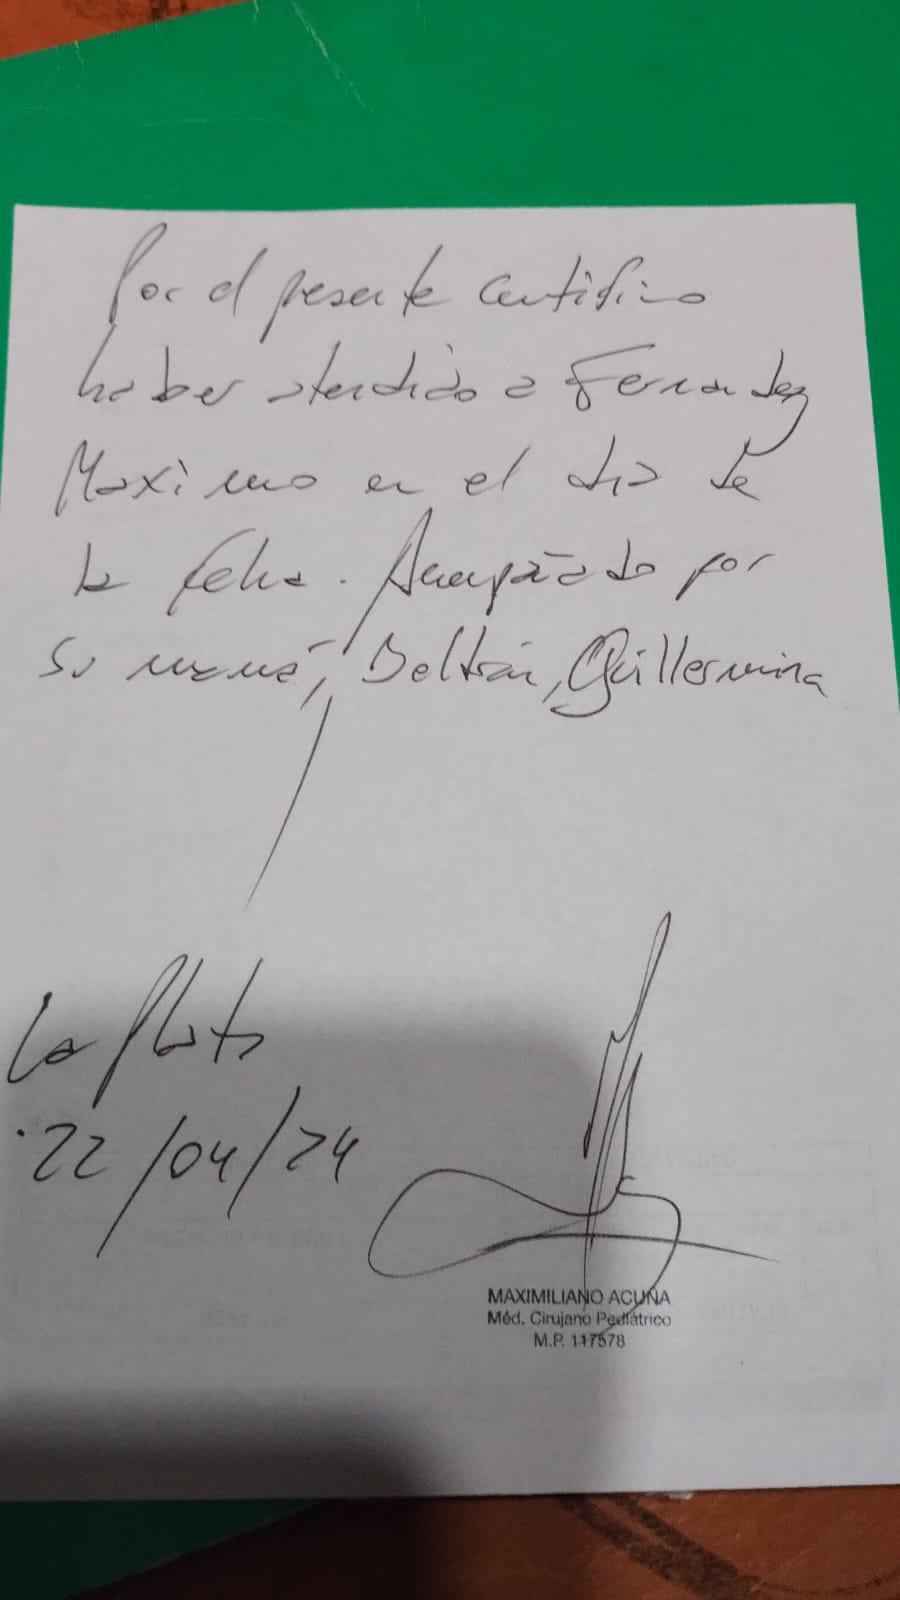 Por el presente certifico
haber atendido a Fernandez
Maximo en el dia de
la fecha. Acompañado por
su mamá, Beltrán, Guillermina
La Plata
22/04/24
MAXIMILIANO ACUÑA
Méd. Cirujano Pediátrico
M.P. 117578